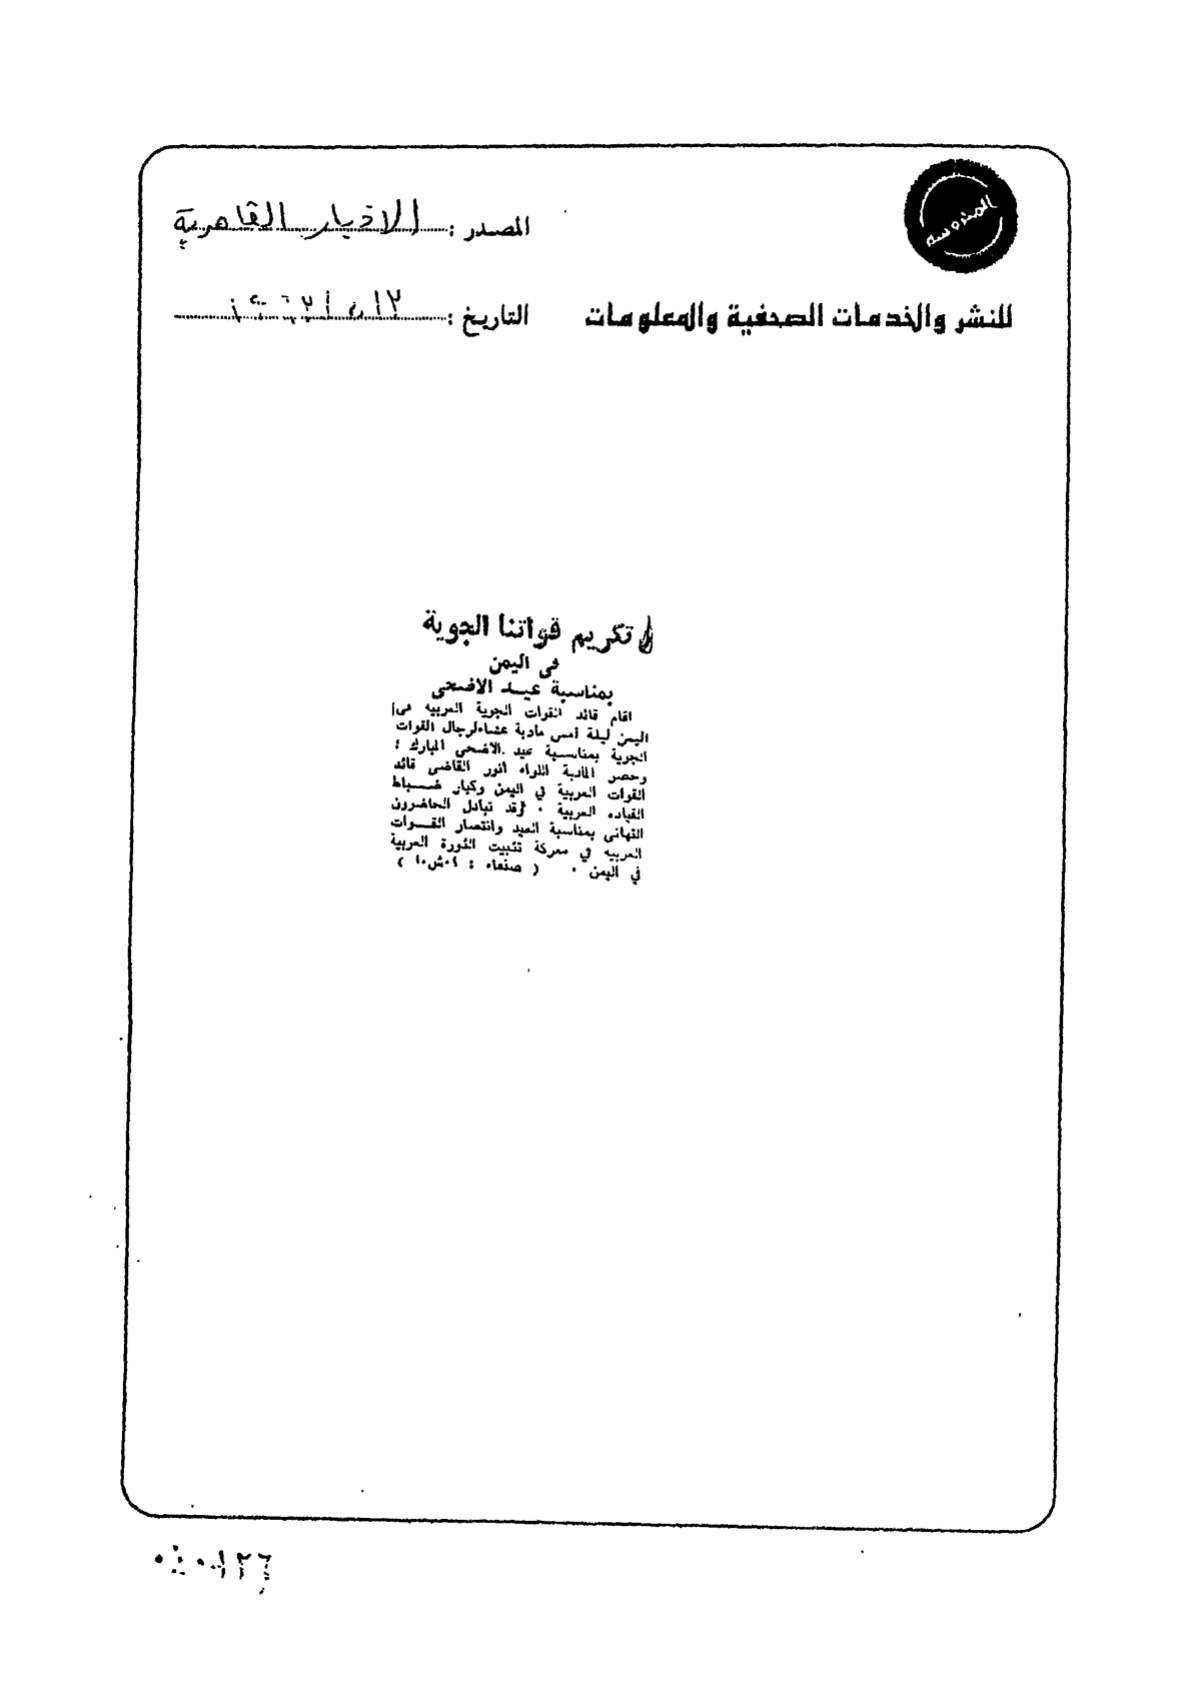 المحروسة
المصدر : الاخبار القاهرية
للنشر والخدمات الصحفية والمعلومات
التاريخ :
تكريم قواتنا الجوية
فى اليمن
بمناسبة عيد الاضحى
اقام قائد القوات الجوية العربيه فى
اليمن ليلة أمس مادبة عشاء لرجال القوات
الجوية بمناسبة عيد الاضحى المبارك ؛
وحضر المادبة اللواء أنور القاضى قائد
القوات العربية في اليمن وكبار ضباط
القياده العربية . وقد تبادل الحاضرون
التهانى بمناسبة العيد وانتصار القوات
العربيه في معركة تثبيت الثورة العربية
في اليمن . ( صنعاء : أ.ش.أ )